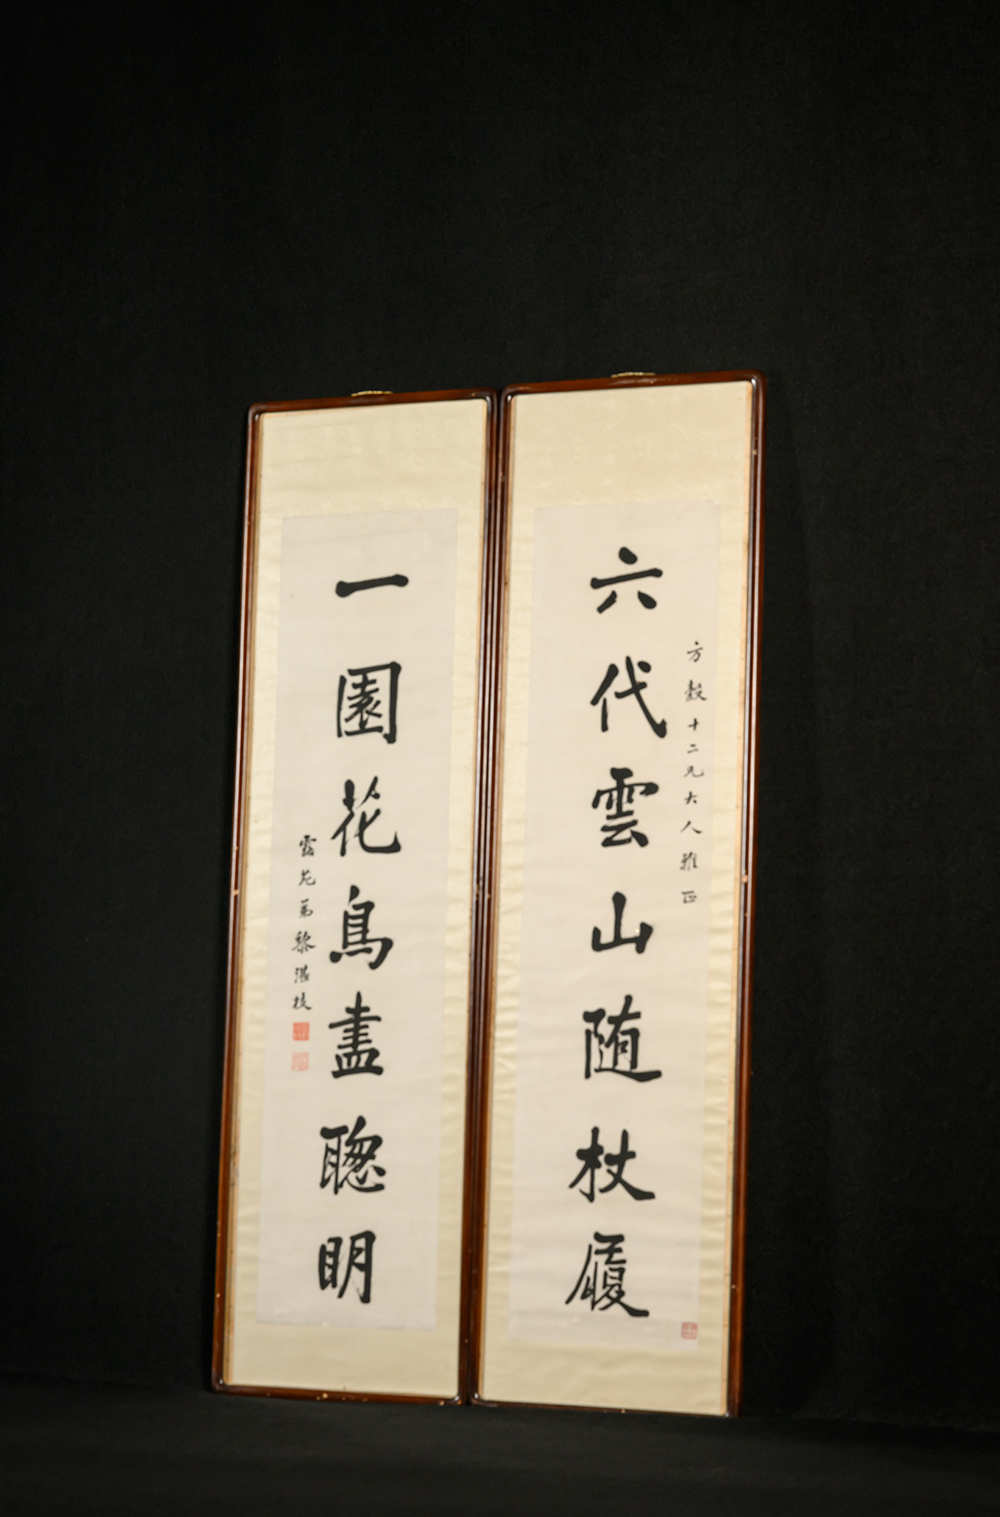 六代雲山随杖履
方穀十二兄大人雅正
一園花鳥盡聰明
露苑弟黎湛枝